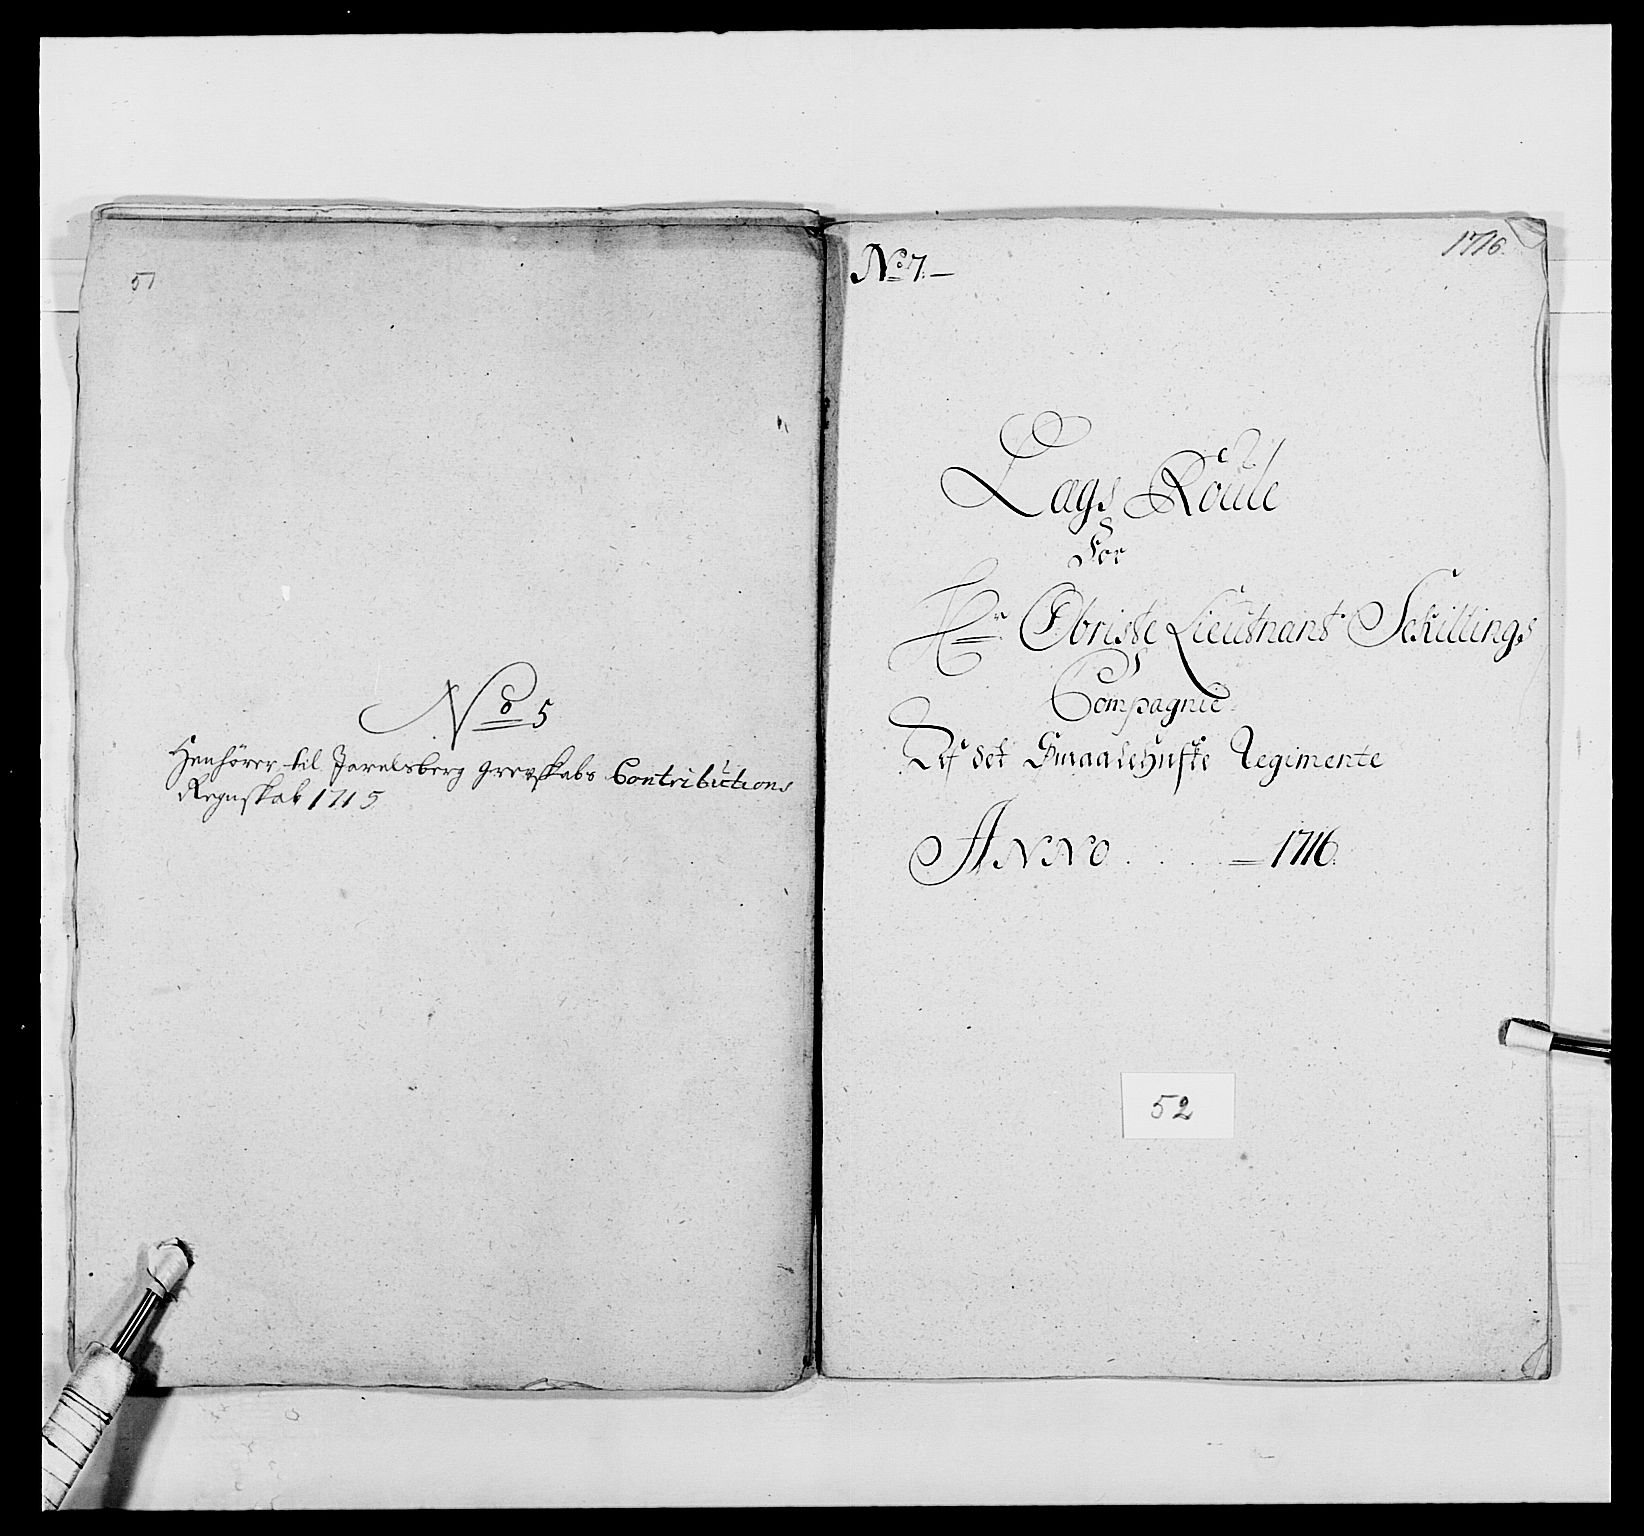 51
No 5
Henhörer til Jarelsberg grevskabs Contributions
Regnskab 1715
No 7.
1716.
Lægs Roule
for
Hr Obriste Lieutnant Schillings
Compagnie
Af det Smaalehnske Regimente
ANNO 1716.
52